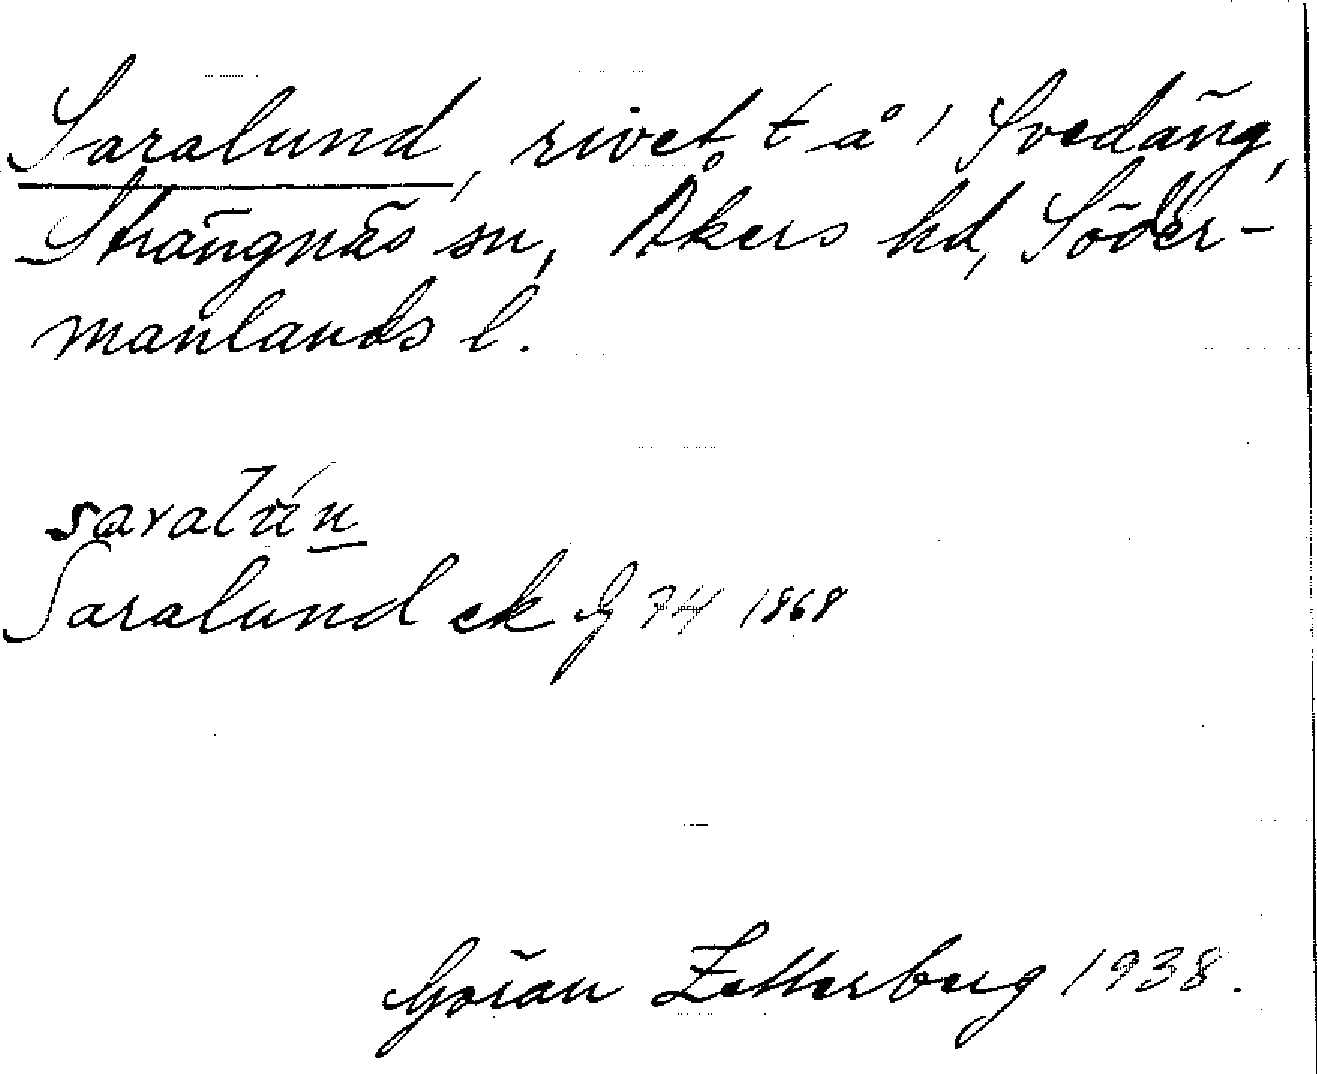 Saralund, rivet t å 1 Svedäng,
Strängnäs sn, Åkers hd, Söder-
manlands l.
saralún
Saralund ek 74 1868
Göran Zetterberg 1938.